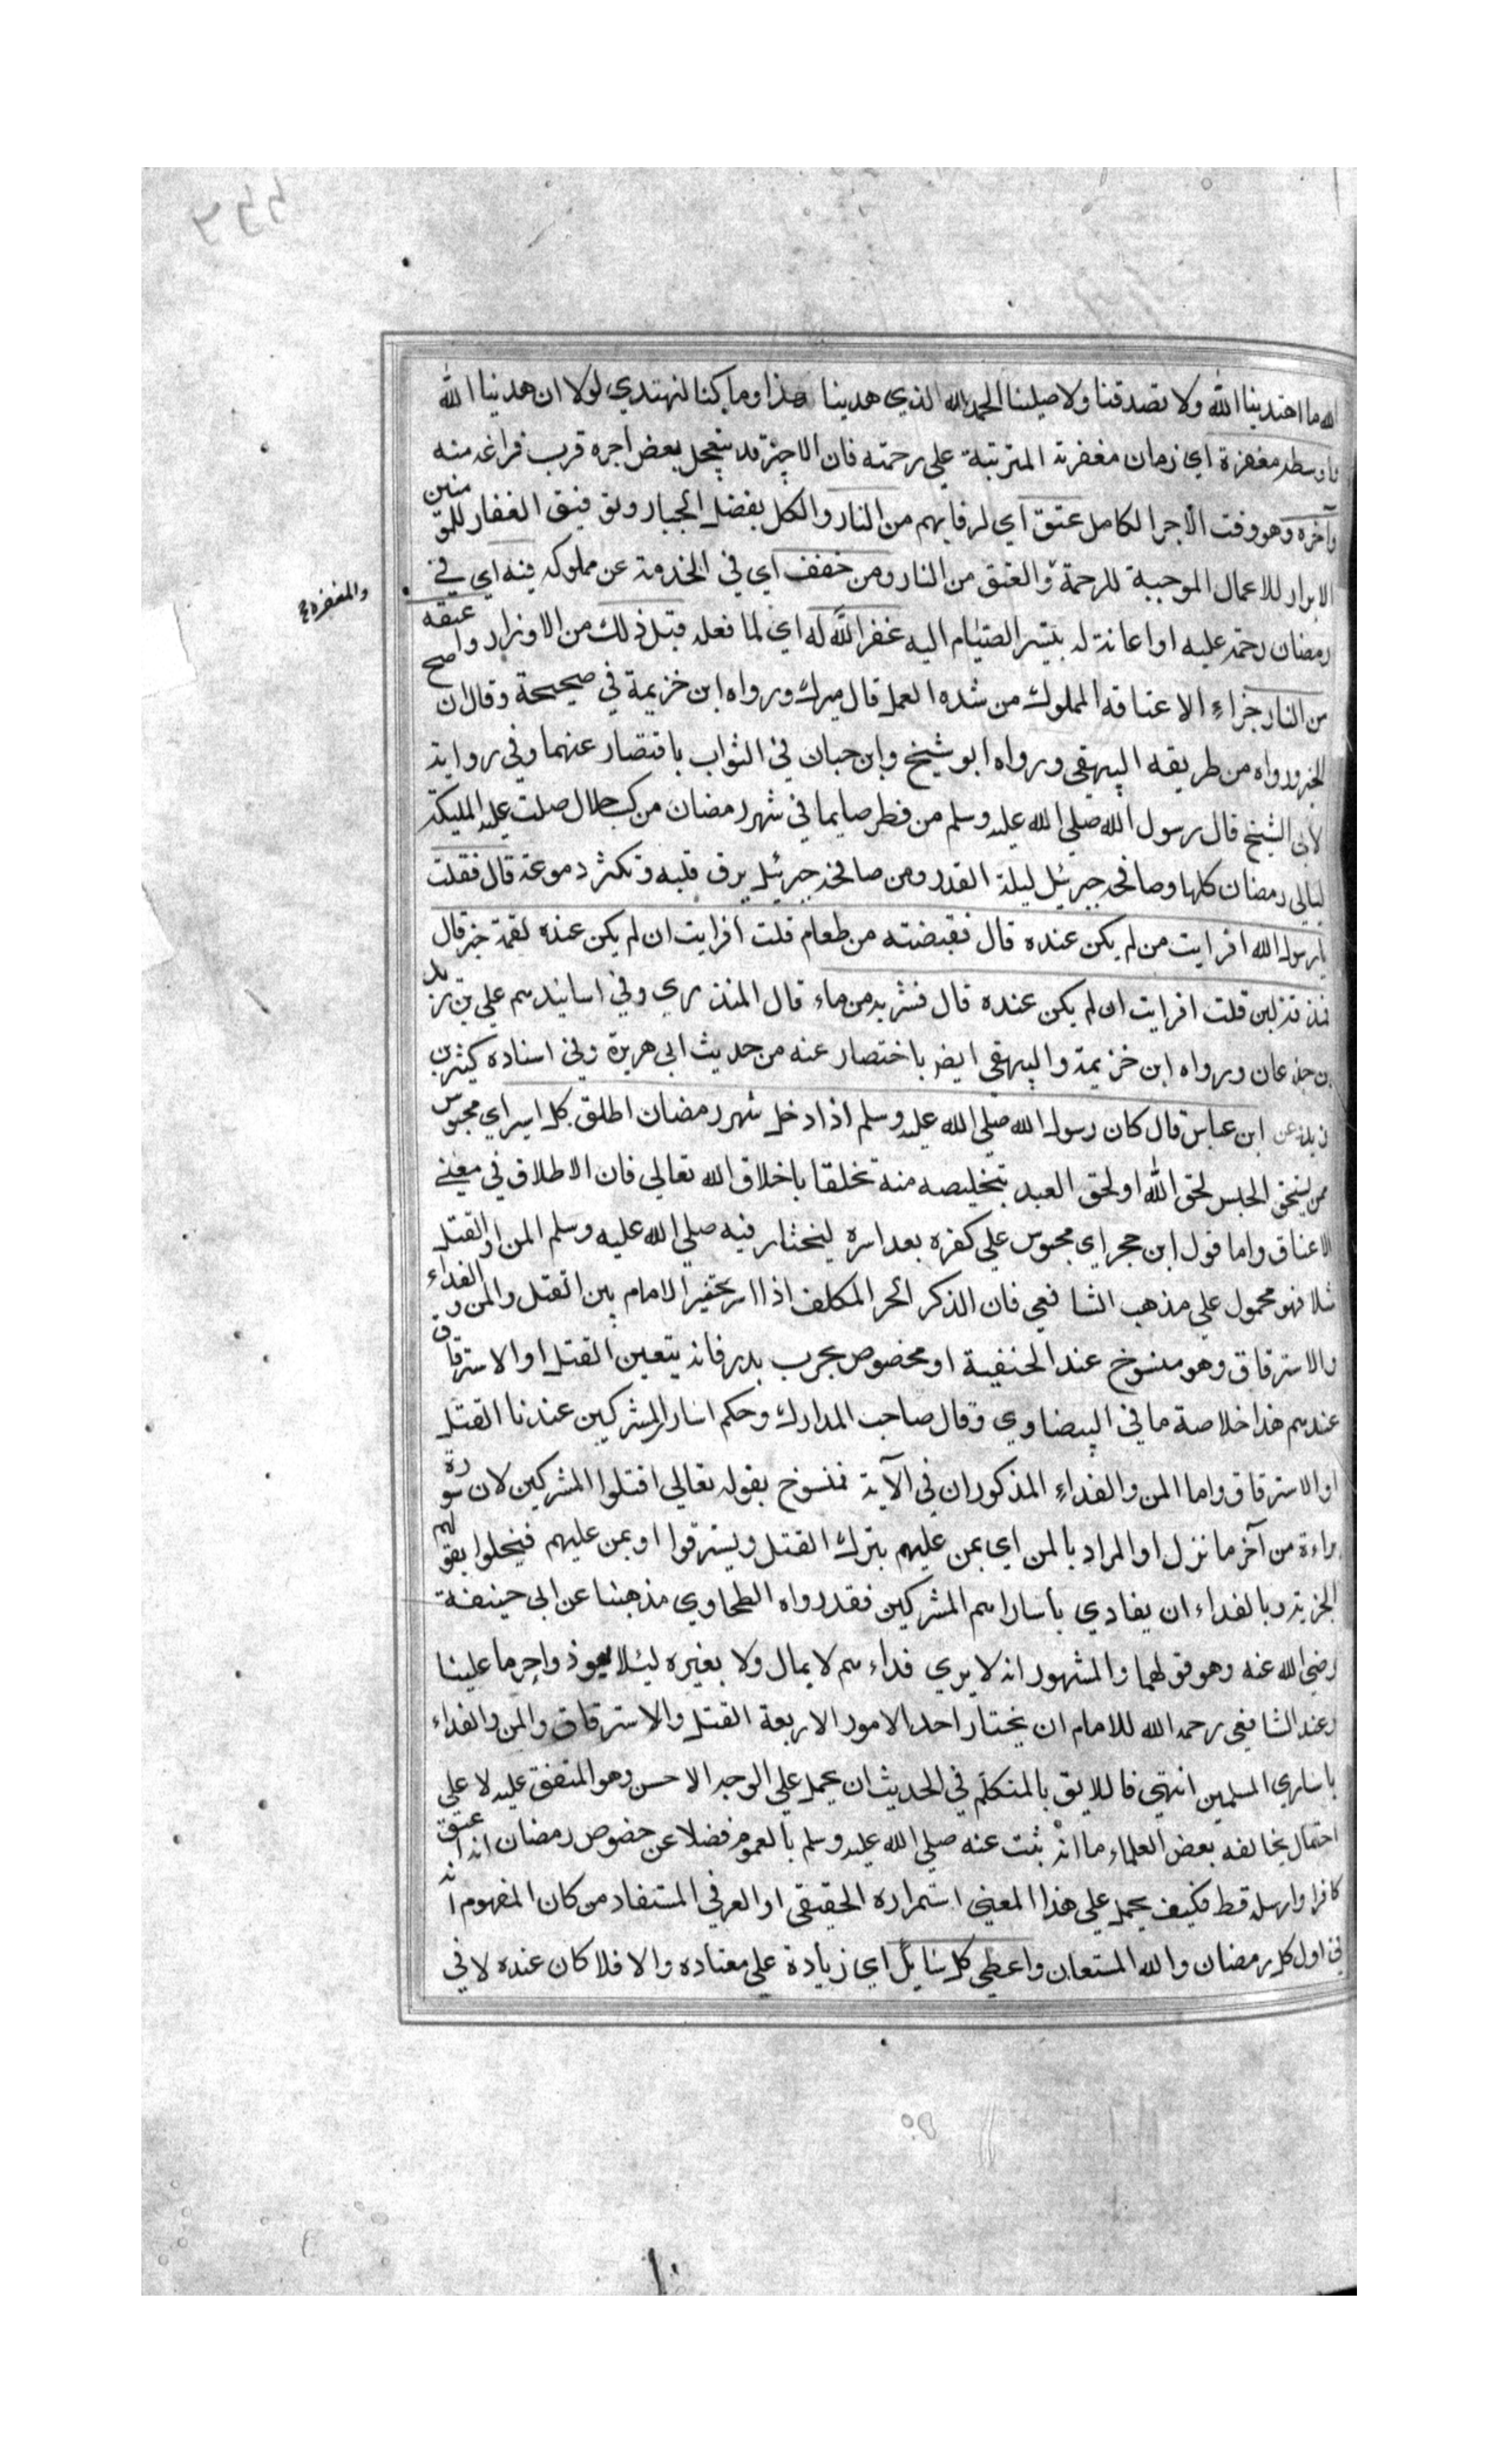 الله ما اهتدينا الله ولا تصدقنا ولا صلينا الحمد لله الذي هدينا هذا وما كنا لنهتدي لولا ان هدينا الله
واوسطه مغفرة اي زمان مغفرته المترتبة علي رحمته فان الاجير قد يتعجل بعض اجره قرب فراغه منه
وآخره وهو وقت الأجر الكامل عتق اي لرقابهم من النار والكل بفضل الجبار وتوفيق الغفار للمؤمنين
الابرار للاعمال الموجبة للرحمة والعتق من النار ومن خفف اي في الخدمة عن مملوكه فيه اي في
والمغفرة
رمضان رحمة عليه او اعانة له بتيسر الصيام اليه غفر الله له اي لما فعله قبل ذلك من الاوزار واعتقه
من النار جزاء الاعتاقه المملوك من شده العمل قال ميرك ورواه ابن خزيمة في صحيحة وقال ان صح
الخبر ورواه من طريقه البيهقي ورواه ابو شيخ وابن حبان في الثواب باقتصار عنهما وفي رواية
لأبي الشيخ قال رسول الله صلي الله عليه وسلم من فطر صايما في شهر رمضان من كسب حلال صلت عليه المليكة
ليالي رمضان كلها وصافحه جبرئيل ليلة القدر ومن صافحه جبرئيل يرق قلبه وتكثر دموعه قال فقلت
يا رسول الله افرايت من لم يكن عنده قال فقبضته من طعام قلت افرايت ان لم يكن عنده لقمة خبز قال
فمذقة لبن قلت افرايت ان لم يكن عنده قال فشربه من ماء قال المنذري وفي اسانيدهم علي بن زيد
بن جذعان ورواه ابن خزيمة والبيهقي ايضا باختصار عنه من حديث ابي هريرة وفي اسناده كثير بن
زيد عن ابن عباس قال كان رسول الله صلي الله عليه وسلم اذا دخل شهر رمضان اطلق كل اسير اي محبوس
ممن يستحق الحبس لحق الله او لحق العبد بتخليصه منه تخلقا باخلاق الله تعالي فان الاطلاق في معني
الاعتاق واما قول ابن حجر اي محبوس علي كفره بعد اسره ليختار فيه صلي الله عليه وسلم المن او القتل
مثلا فهو محمول علي مذهب الشافعي فان الذكر الحر المكلف اذا اسر يخير الامام بين القتل والمن والفداء
والاسترقاق وهو منسوخ عند الحنفية او مخصوص بحرب بدر فانه يتعين القتل او الاسترقاق
عندهم هذا خلاصة ما في البيضاوي وقال صاحب المدارك وحكم اسار المشركين عندنا القتل
او الاسترقاق واما المن والفداء المذكوران في الآية فمنسوخ بقوله تعالي اقتلوا المشركين لان سورة
براءة من آخر ما نزل او المراد بالمن اي يمن عليهم بترك القتل ويسترقوا او يمن عليهم فيخلوا بقولهم
الجزية وبالفداء ان يفادي بأساراهم المشركين فقد رواه الطحاوي مذهبنا عن ابي حنيفة
رضي الله عنه وهو قولهما والمشهور انه لا يري فداءهم لا بمال ولا بغيره ليئلا يعوذوا حرما علينا
وعند الشافعي رحمه الله للامام ان يختار احد الامور الاربعة القتل والاسترقاق والمن والفداء
باساري المسلمين انتهي فاللايق بالمتكلم في الحديث ان يحمل علي الوجه الاحسن وهو المتفق عليه لا علي
احتمال يخالفه بعض العلماء ما انه ثبت عنه صلي الله عليه وسلم بالعموم فضلا عن خصوص رمضان انه اعتق
كافرا وارسله قط فكيف يحمل علي هذا المعني استمراره الحقيقي او العرفي المستفاد من كان المفهوم انه
في اول كل رمضان والله المستعان واعطي كل سايل اي زيادة علي معتاده والا فلا كان عنده لا في